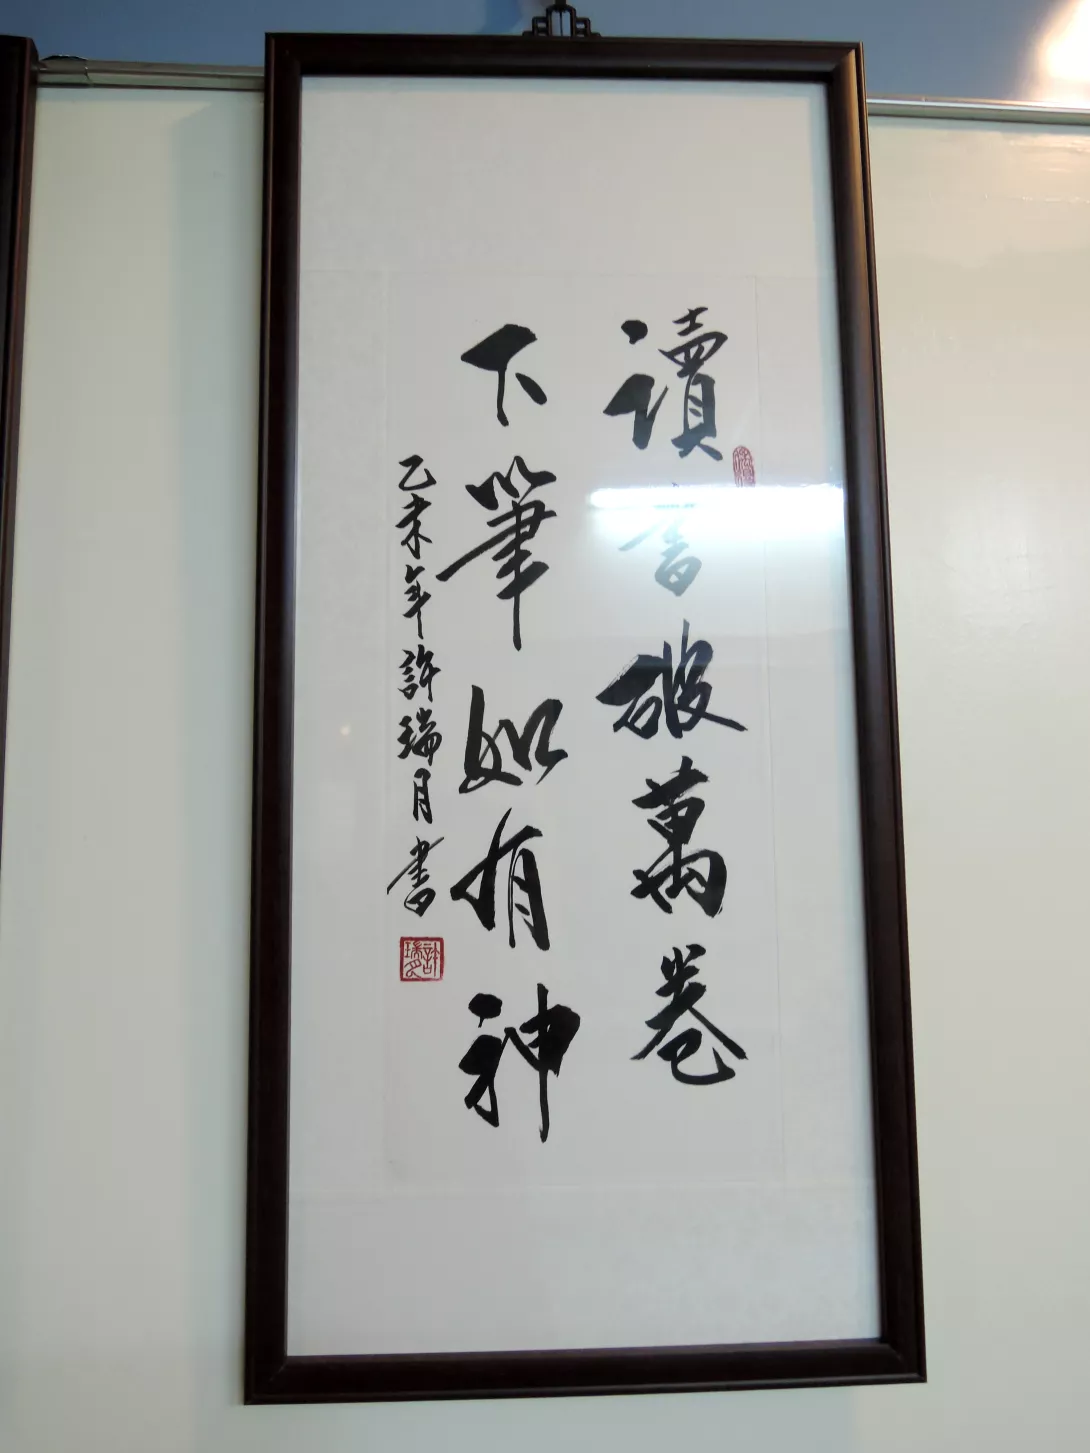 讀書破萬卷
下筆如有神
乙未年許瑞月書
許瑞月